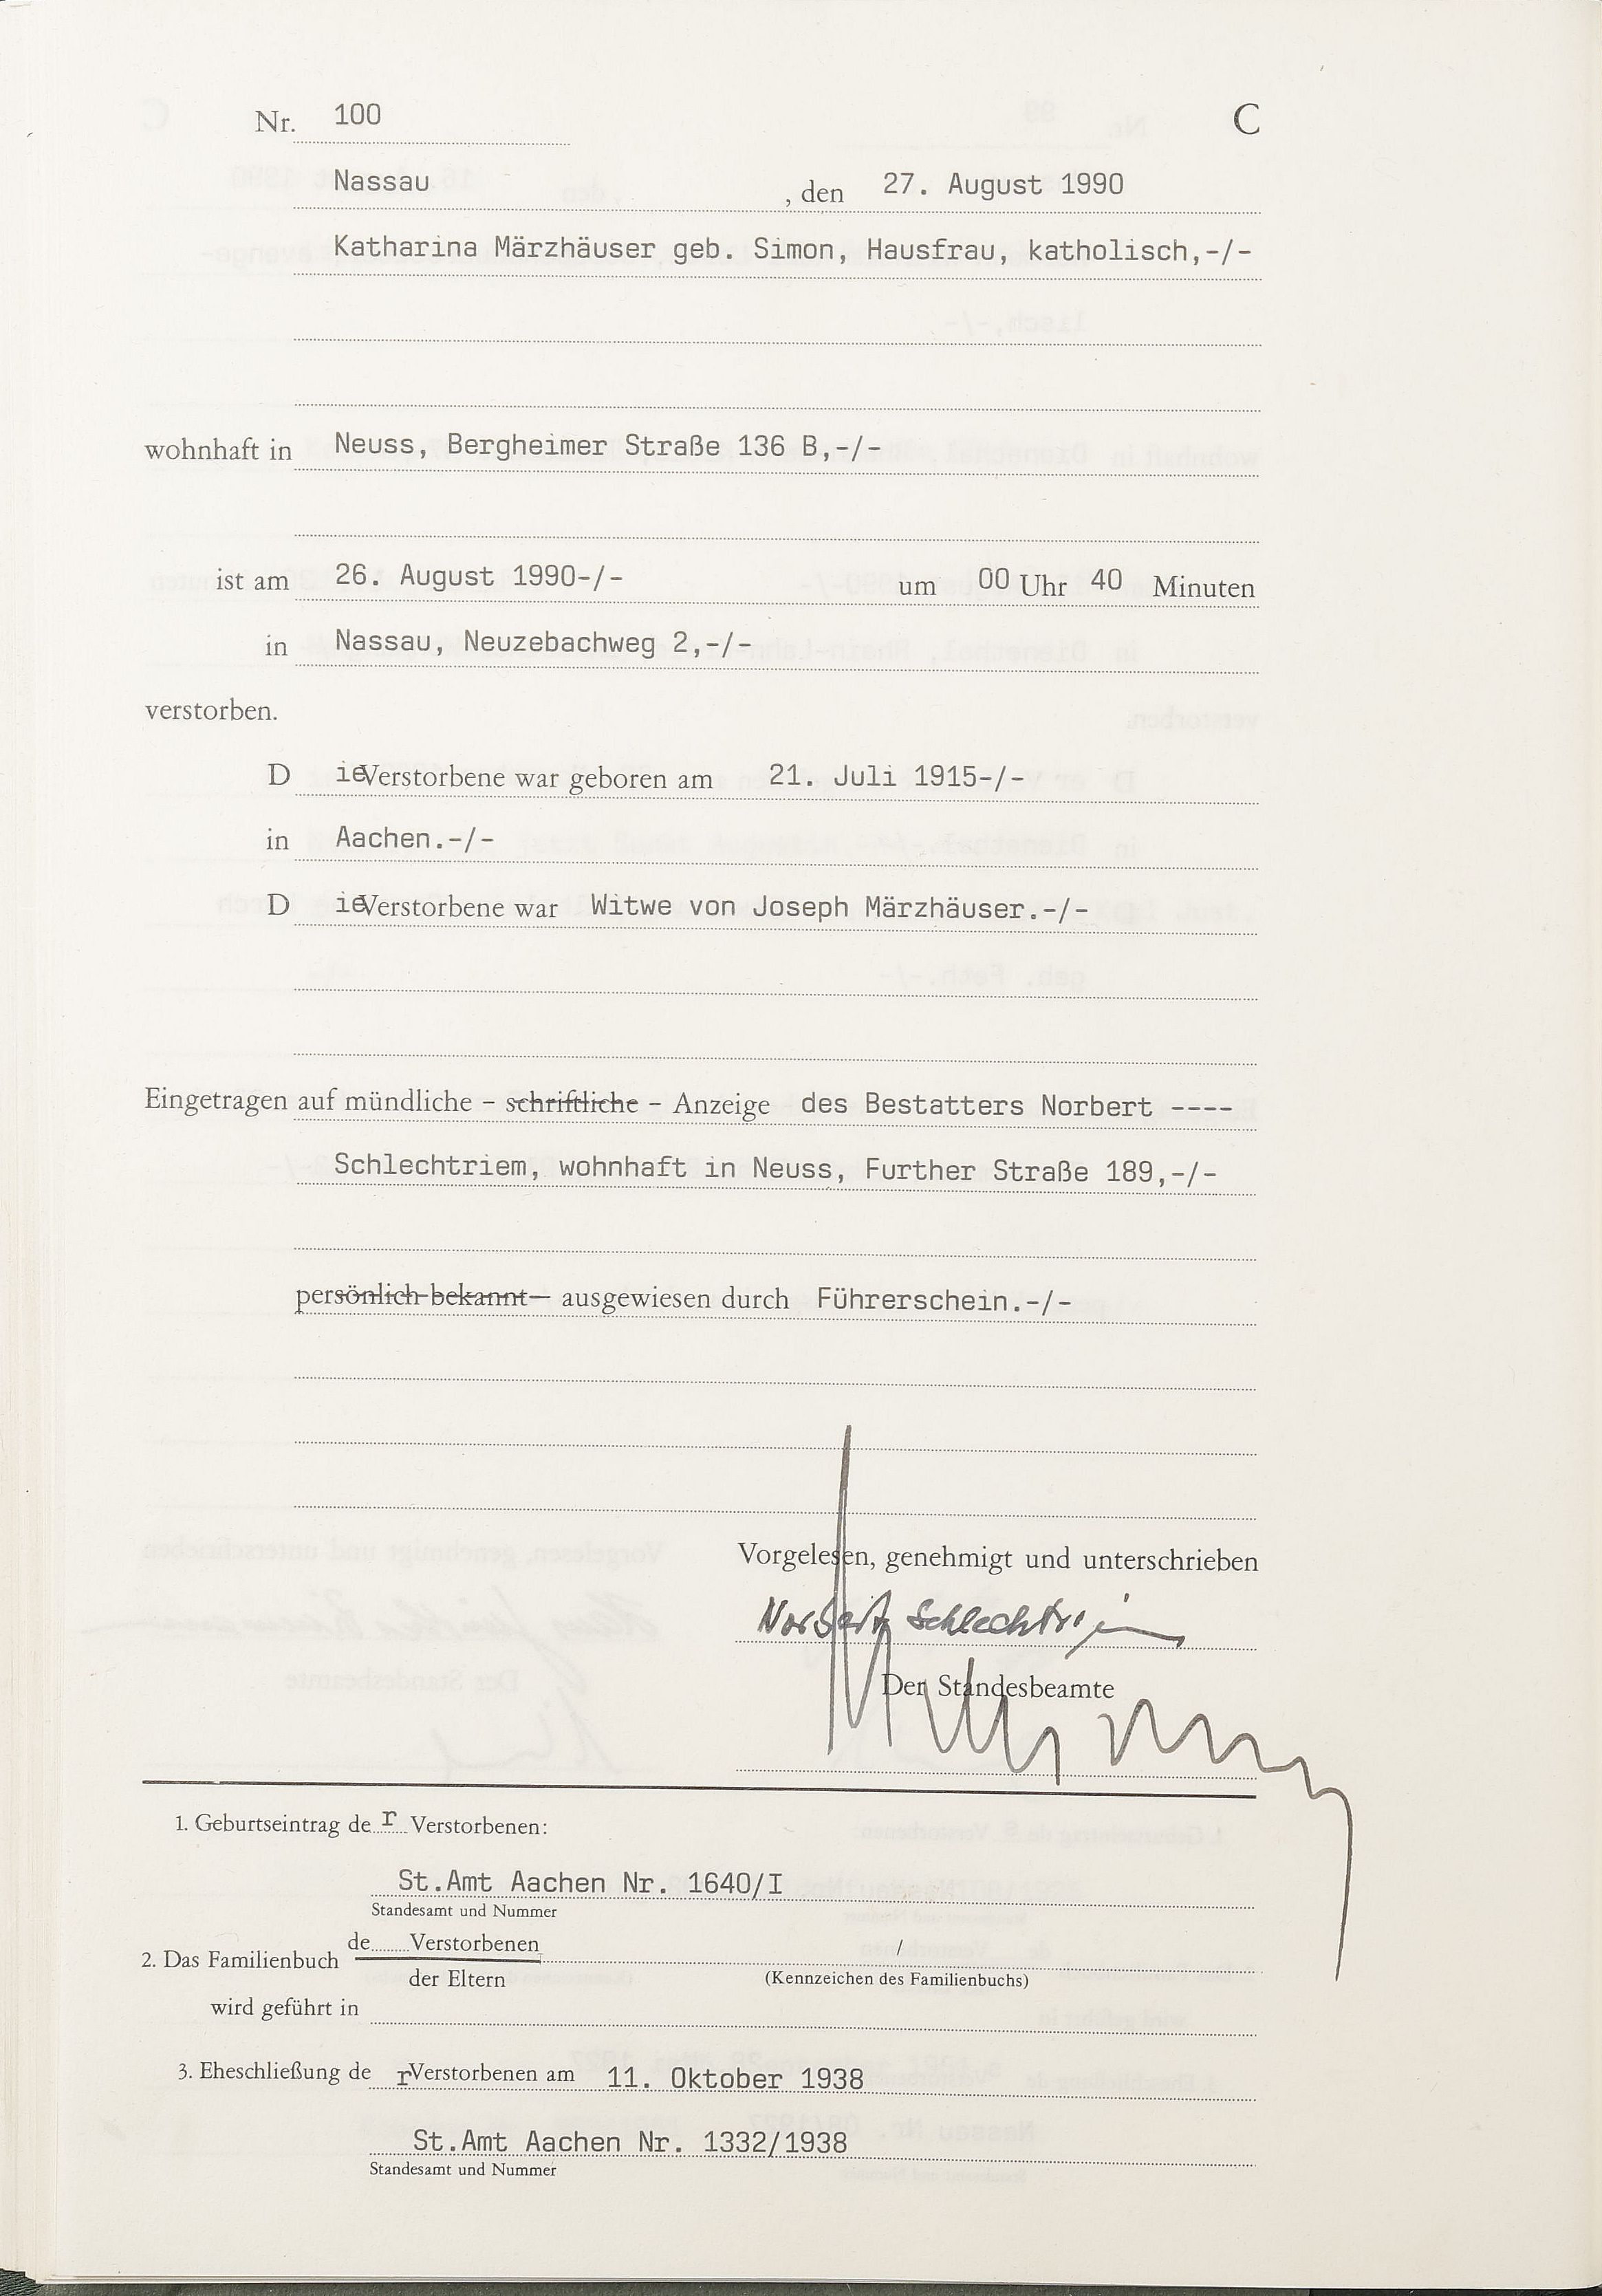 Nr. 100 C
Nassau , den 27. August 1990
Katharina Märzhäuser geb. Simon, Hausfrau, katholisch,-/-
wohnhaft in Neuss, Bergheimer Straße 136 B,-/-
ist am 26. August 1990-/- um 00 Uhr 40 Minuten
in Nassau, Neuzebachweg 2,-/-
verstorben.
D ie Verstorbene war geboren am 21. Juli 1915-/-
in Aachen.-/-
D ie Verstorbene war Witwe von Joseph Märzhäuser.-/-
Eingetragen auf mündliche - schriftliche - Anzeige des Bestatters Norbert ----
Schlechtriem, wohnhaft in Neuss, Further Straße 189,-/-
persönlich bekannt - ausgewiesen durch Führerschein.-/-
Vorgelesen, genehmigt und unterschrieben
Norbert Schlechtriem
Der Standesbeamte
1. Geburtseintrag de r Verstorbenen:
St.Amt Aachen Nr. 1640/I
Standesamt und Nummer
de Verstorbenen /
2. Das Familienbuch
der Eltern (Kennzeichen des Familienbuchs)
wird geführt in
3. Eheschließung de r Verstorbenen am 11. Oktober 1938
St.Amt Aachen Nr. 1332/1938
Standesamt und Nummer